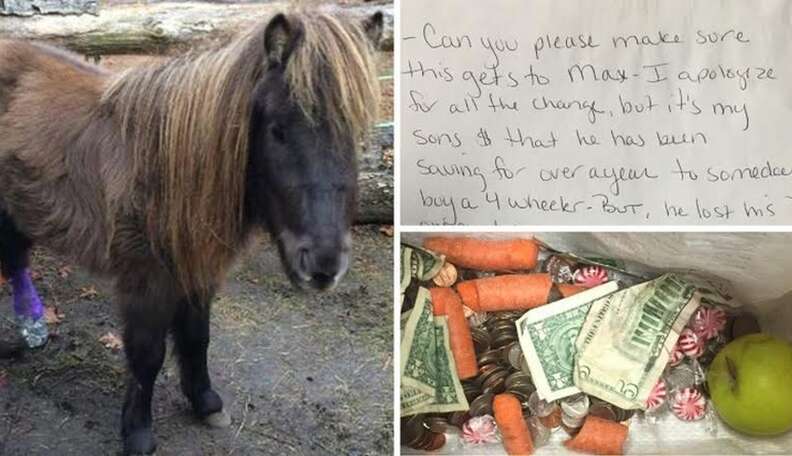 - Can you please make sure
this gets to Max - I apologize
for all the change, but it's my
sons $ that he has been
saving for over a year to someday
buy a 4 wheeler - BUT, he lost his